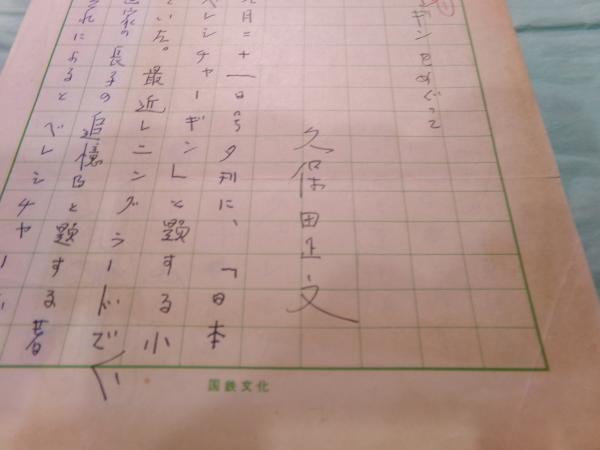 ギンをめぐって
久保田正文
月二十一日号夕刊に、「日本
レシチャーギン」と題する小
いた。最近レニングラードで
家の長子の追憶と題する
れによるとベレシチャー
国鉄文化